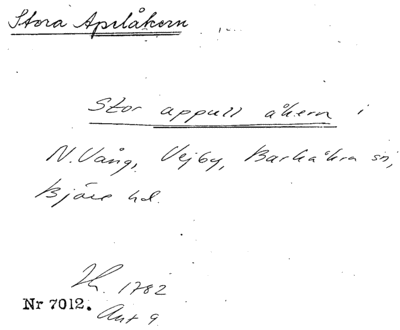 Stora Aprilåkern
Stor appull åkern i
N. Vång, Vejby, Barkåkra sn,
Bjäre hd.
Lh. 1782
Nr 7012.
Akt 9